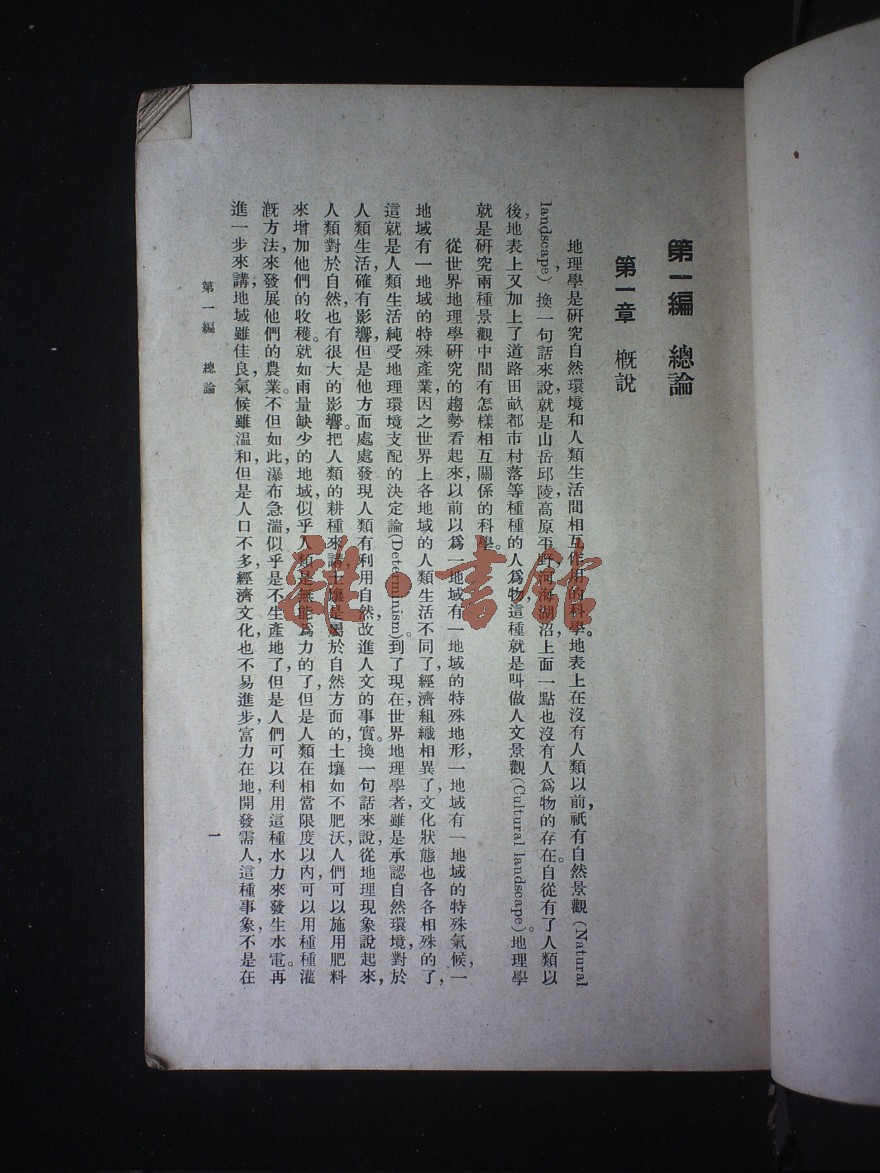 第一編　總論
第一章　概說
地理學是硏究自然環境和人類生活間相互作用的科學。地表上在沒有人類以前，祇有自然景觀(Natural
landscape)，換一句話來說，就是山岳邱陵高原平野河海湖沼，上面一點也沒有人爲物的存在。自從有了人類以
後，地表上又加上了道路田畝都市村落等種種的人爲物，這種就是叫做人文景觀(Cultural landscape)。地理學
就是硏究兩種景觀中間有怎樣相互關係的科學。
從世界地理學硏究的趨勢看起來，以前以爲一地域有一地域的特殊地形，一地域有一地域的特殊氣候，一
地域有一地域的特殊產業，因之世界上各地域的人類生活不同了，經濟組織相異了，文化狀態也各各相殊的了，
這就是人類生活純受地理環境支配的決定論(Determinism)。到了現在，世界地理學者，雖是承認自然環境，對於
人類生活，確有影響，但是他方面處處發現人類有利用自然，改進人文的事實。換一句話來說，從地理現象說起來，
人類對於自然，也有很大的影響。把人類的耕種來講，土壤是屬於自然方面的，土壤如不肥沃，人們可以施用肥料
來增加他們的收穫。就如雨量缺少的地域，似乎人類是無能爲力的了，但是人類在相當限度以內，可以用種種灌
漑方法，來發展他們的農業。不但如此，瀑布急湍，似乎是不生產地了，但是人們可以利用這種水力來發生水電。再
進一步來講，地域雖佳良，氣候雖溫和，但是人口不多，經濟文化也不易進步，富力在地，開發需人，這種事象，不是在
第一編　總論
一
雜·書館